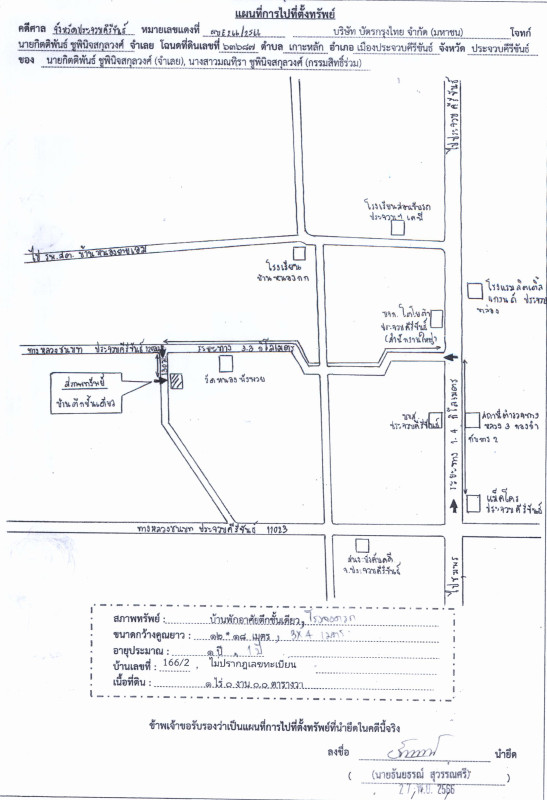 แผนที่การไปที่ตั้งทรัพย์
คดีศาล จังหวัดประจวบคีรีขันธ์ หมายเลขแดงที่ บริษัท บัตรกรุงไทย จำกัด (มหาชน) โจทก์
นายกิตติพันธ์ ชูพินิจสกุลวงศ์ จำเลย โฉนดที่ดินเลขที่ ๖๓๖๘๗ ตำบล เกาะหลัก อำเภอ เมืองประจวบคีรีขันธ์ จังหวัด ประจวบคีรีขันธ์
ของ นายกิตติพันธ์ ชูพินิจสกุลวงศ์ (จำเลย), นางสาวมณทิรา ชูพินิจสกุลวงศ์ (กรรมสิทธิ์ร่วม)
ไปประจวบคีรีขันธ์
โรงเรียน
ประจวบฯ
ไป รพ.สต. บ้านหนองยายเอม
โรงเรียน
บ้านหนองกก
โรงแรม
แกรนด์ ประจวบ
บจก. โตโยต้า
ประจวบคีรีขันธ์
(สำนักงานใหญ่)
ทางหลวงชนบท ประจวบคีรีขันธ์ ระยะทาง 3.3 กิโลเมตร
วัดหนองพังพวย
สภาพทรัพย์
บ้านตึกชั้นเดียว
ระยะทาง 1.4 กิโลเมตร
ประจวบคีรีขันธ์
สถานีตำรวจทาง
หลวง 3 กองกำ
กับการ 2
แม็คโคร
ประจวบคีรีขันธ์
ทางหลวงชนบท ประจวบคีรีขันธ์
จ.ประจวบคีรีขันธ์
ไปชุมพร
สภาพทรัพย์ : บ้านพักอาศัยตึกชั้นเดียว, โรงจอดรถ
ขนาดกว้างคูณยาว : ๑๒ * ๑๘ เมตร, 3x4 เมตร
อายุประมาณ : ๑ ปี , 1 ปี
บ้านเลขที่ : 166/2 , ไม่ปรากฏเลขทะเบียน
เนื้อที่ดิน : ๑ ไร่ ๐ งาน ๐.๐ ตารางวา
ข้าพเจ้าขอรับรองว่าเป็นแผนที่การไปที่ตั้งทรัพย์ที่นำยึดในคดีนี้จริง
ลงชื่อ นำยึด
(นายธันยธรณ์ สุวรรณศรี)
27 พ.ย. 2566